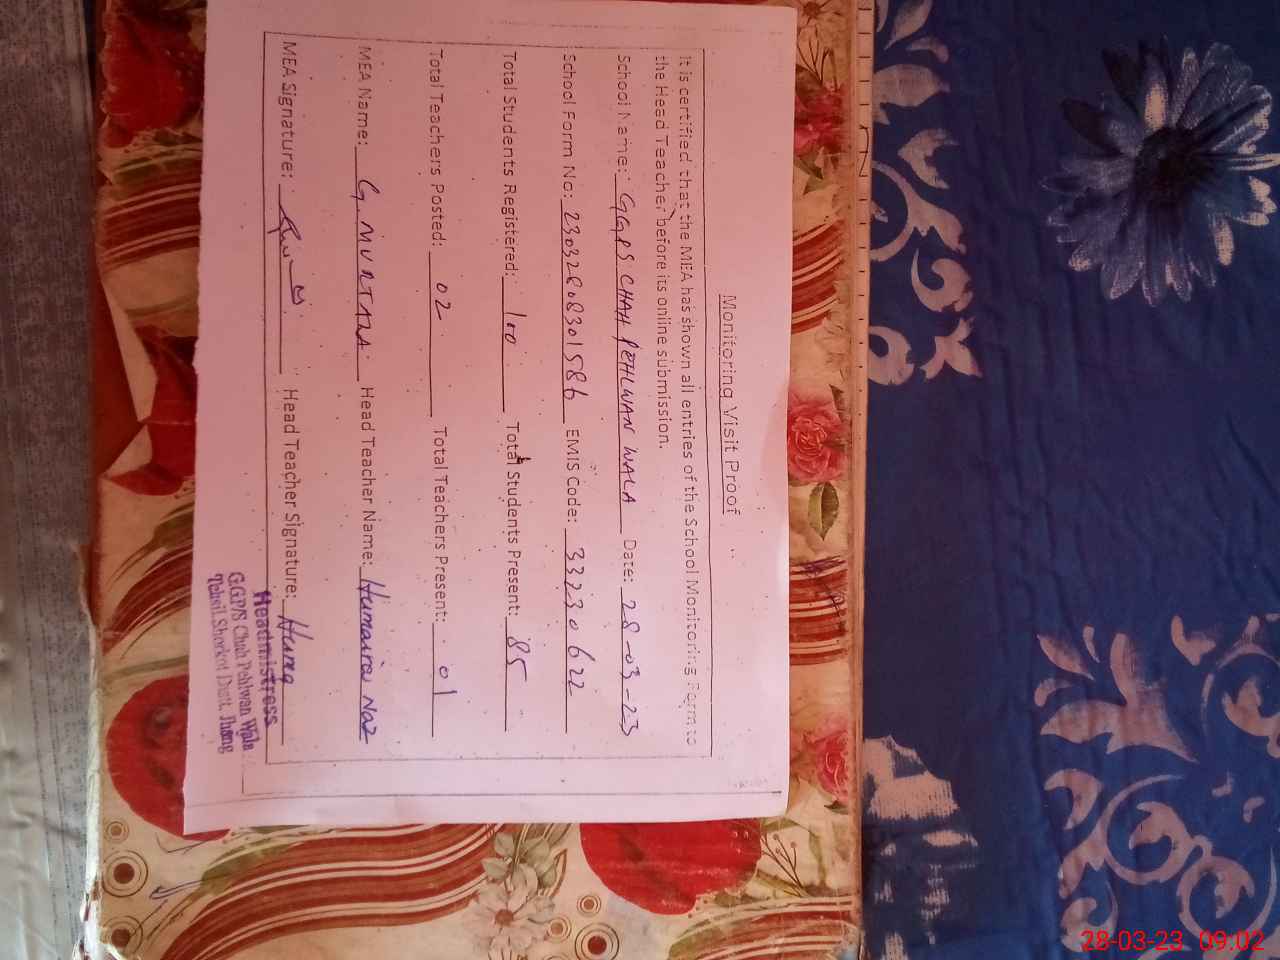 Monitoring Visit Proof
It is certified that the MEA has shown all entries of the School Monitoring Form to
the Head Teacher before its online submission.
School Name: GGPS CHAH PEHLWAN WALA Date: 28-03-23
School Form No: 23032808301586 EMIS Code: 33230622
Total Students Registered: 100 Total Students Present: 85
Total Teachers Posted: 02 Total Teachers Present: 01
MEA Name: G. MURTAZA Head Teacher Name: Humaira Naz
MEA Signature: Head Teacher Signature: Huma
Headmistress
G.GP/S Chah Pehlwan Wala
Tehsil Shorkot Distt. Jhang
28-03-23 09:02